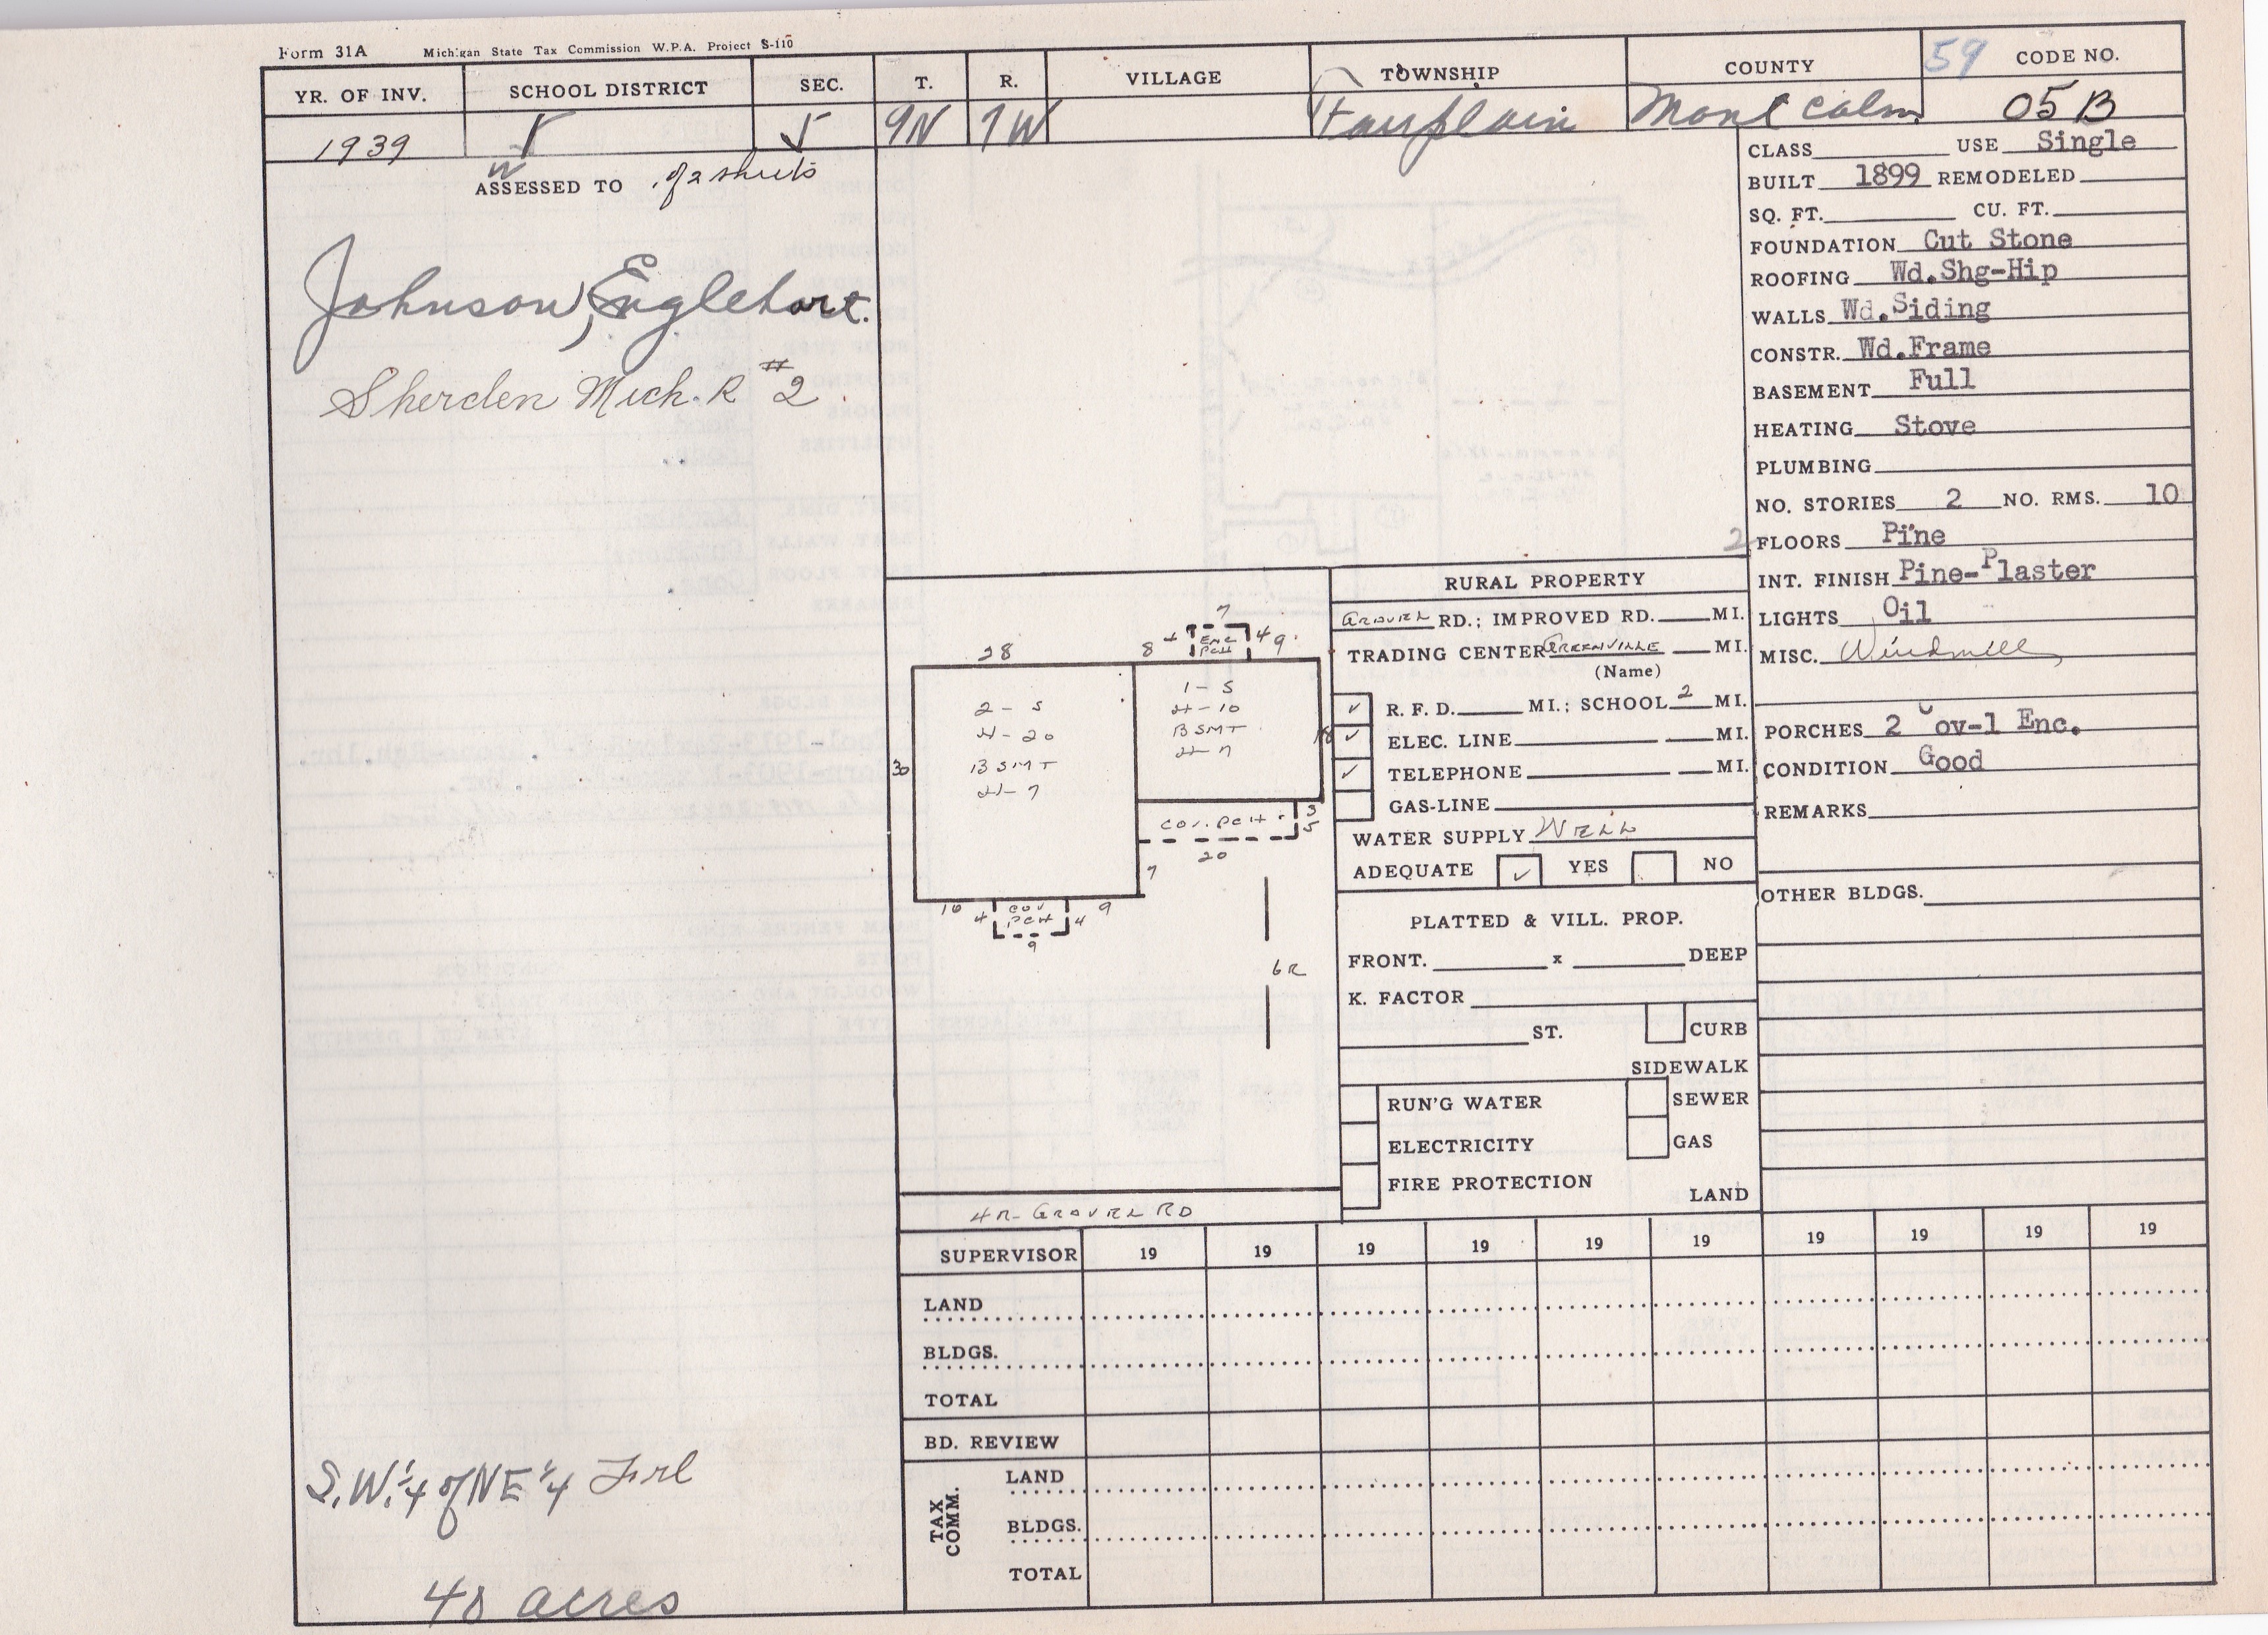 Form 31A Michigan State Tax Commission W.P.A. Project S-110
YR. OF INV. SCHOOL DISTRICT SEC. T. R. VILLAGE TOWNSHIP COUNTY 59 CODE NO.
1939 5 5 9N 7W Fairplain Montcalm 05B
ASSESSED TO of 2 sheets
Johnson, Englehart.
Sherden Mich. R #2
S.W.¼ of NE¼ Frl
40 acres
28
8 4 7 4 9
ENC PCH
2 - S
H - 20
BSMT
H - 7
1 - S
H - 10
BSMT
H - 7
30
18
COV. PCH
3
5
20
7
10 4 COV PCH 4 9
9
6R
4R - GRAVEL RD
RURAL PROPERTY
GRAVEL RD.; IMPROVED RD. MI.
TRADING CENTER GREENVILLE MI.
(Name)
✓ R. F. D. MI.; SCHOOL 2 MI.
✓ ELEC. LINE MI.
✓ TELEPHONE MI.
GAS-LINE
WATER SUPPLY WELL
ADEQUATE ✓ YES NO
PLATTED & VILL. PROP.
FRONT. x DEEP
K. FACTOR
ST. CURB
SIDEWALK
RUN'G WATER SEWER
ELECTRICITY GAS
FIRE PROTECTION
LAND
CLASS USE Single
BUILT 1899 REMODELED
SQ. FT. CU. FT.
FOUNDATION Cut Stone
ROOFING Wd.Shg-Hip
WALLS Wd.Siding
CONSTR. Wd.Frame
BASEMENT Full
HEATING Stove
PLUMBING
NO. STORIES 2 NO. RMS. 10
2 FLOORS Pine
INT. FINISH Pine-Plaster
LIGHTS Oil
MISC. Windmill
PORCHES 2 Cov-1 Enc.
CONDITION Good
REMARKS
OTHER BLDGS.
SUPERVISOR 19 19 19 19 19 19 19 19 19 19
LAND
BLDGS.
TOTAL
BD. REVIEW
TAX COMM.
LAND
BLDGS.
TOTAL